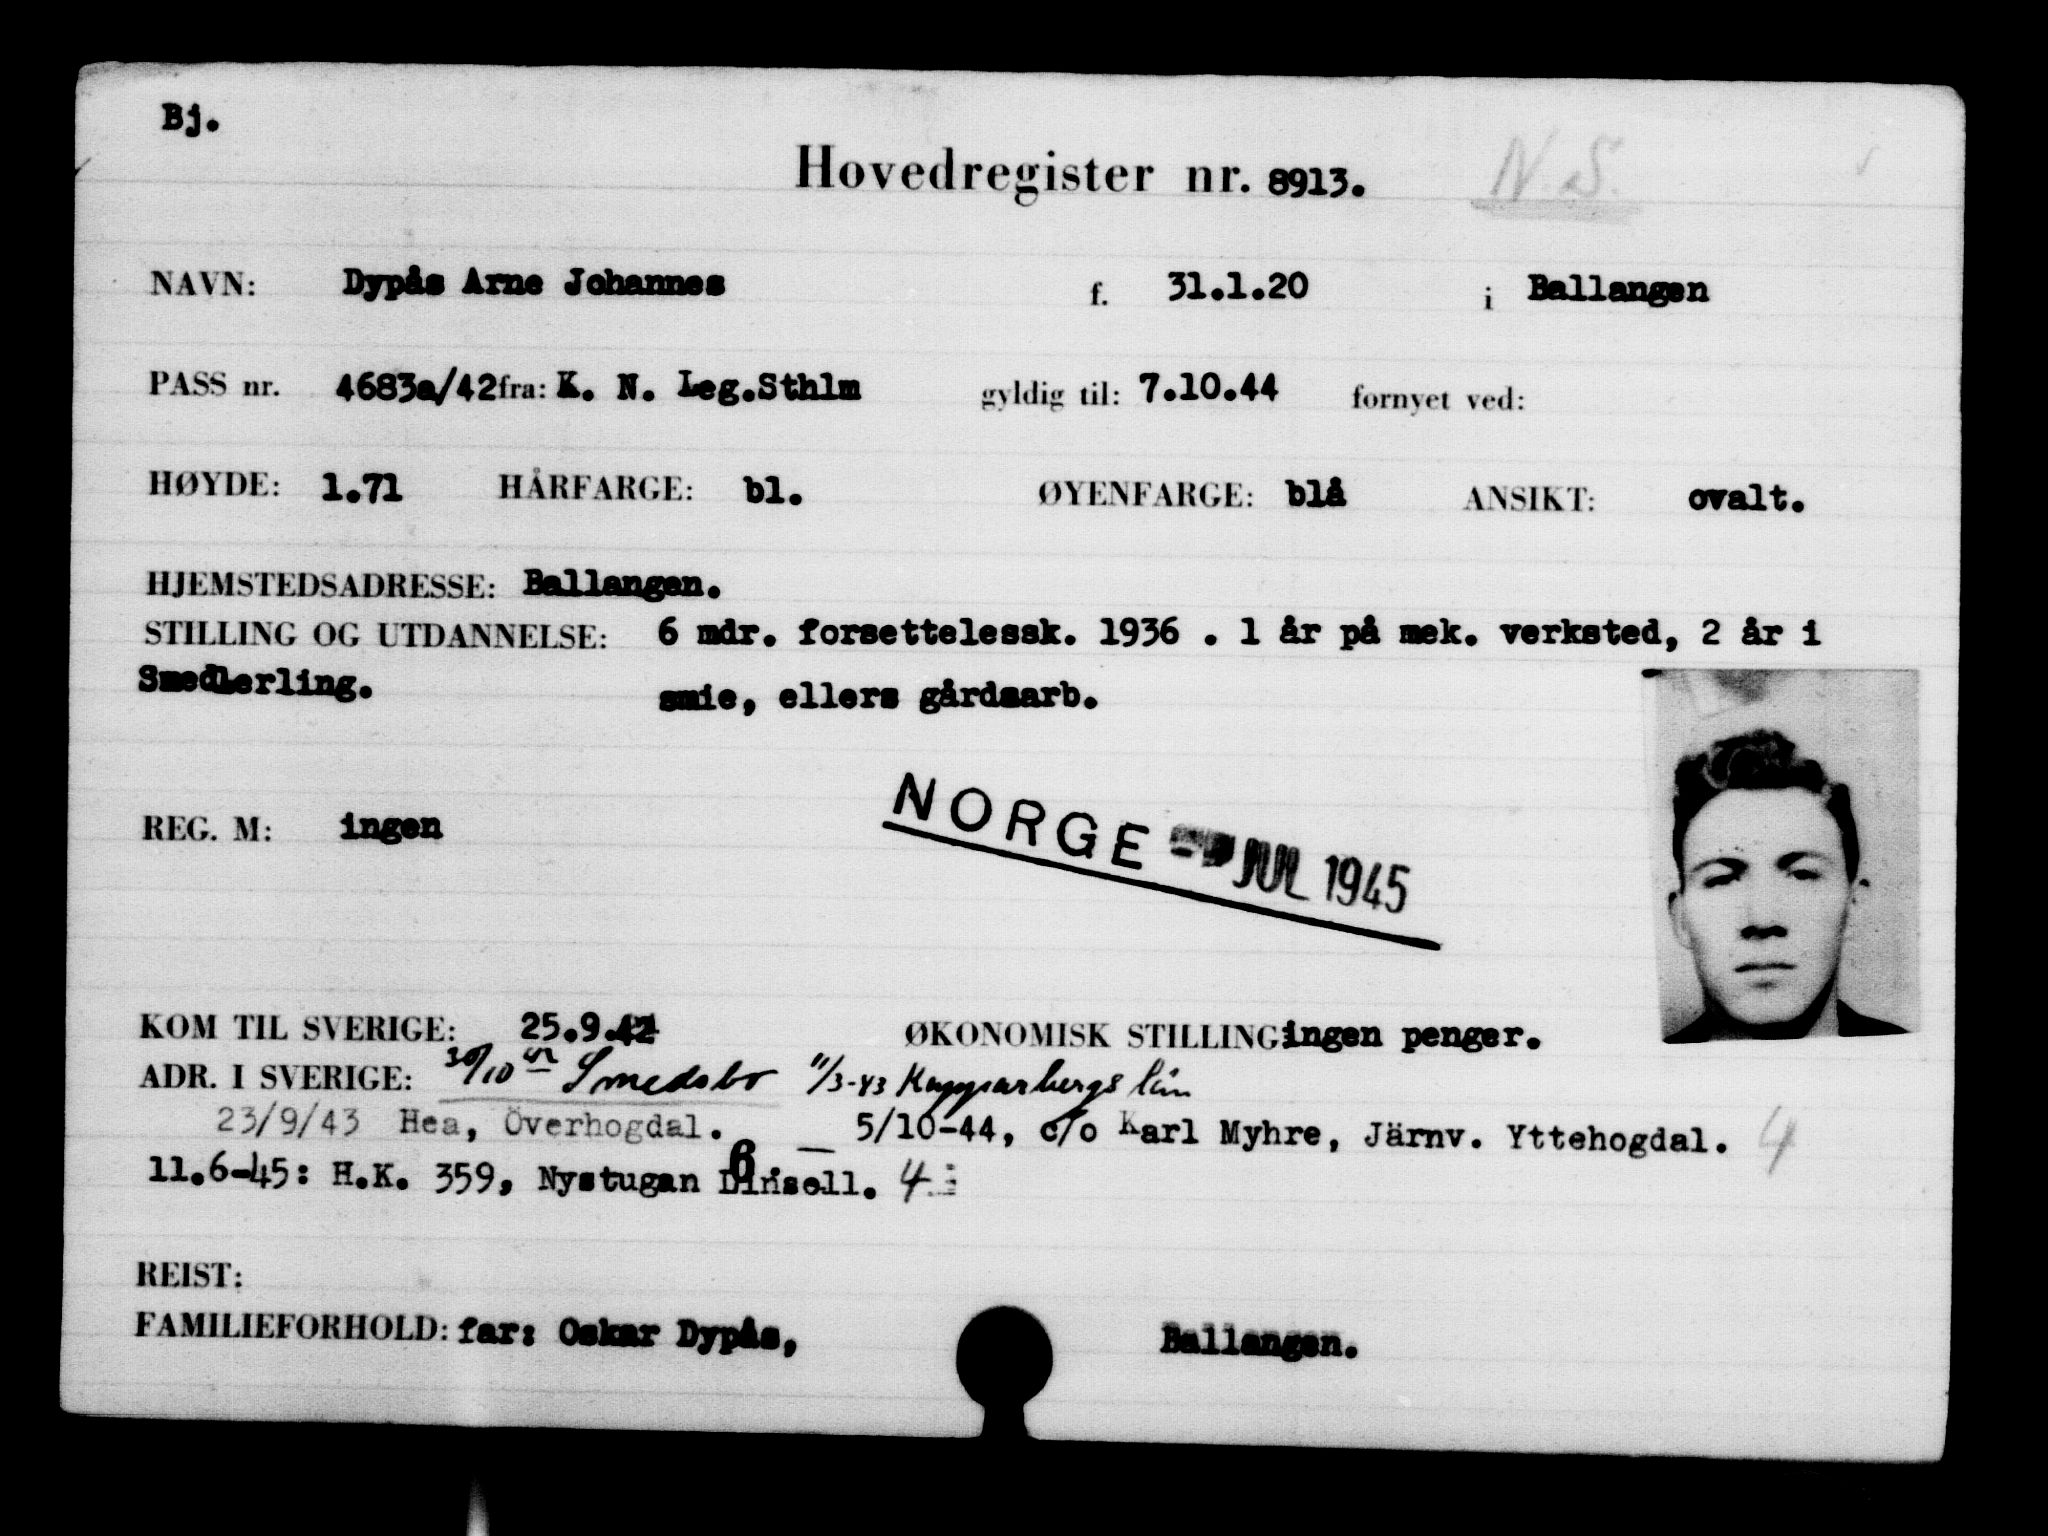 Bj.
Hovedregister nr. 8913.
N.S.
NAVN: Dypås Arne Johannes f. 31.1.20 i Ballangen
PASS nr. 4683a/42 fra: K. N. Leg.Sthlm gyldig til: 7.10.44 fornyet ved:
HØYDE: 1.71 HÅRFARGE: bl. ØYENFARGE: blå ANSIKT: ovalt.
HJEMSTEDSADRESSE: Ballangen.
STILLING OG UTDANNELSE: 6 mdr. forsettelessk. 1936 . 1 år på mek. verksted, 2 år i
Smedlerling. smie, ellers gårdsarb.
REG. M: ingen
NORGE - JUL 1945
KOM TIL SVERIGE: 25.9.42 ØKONOMISK STILLING: ingen penger.
ADR. I SVERIGE: 30/10 42 Smedsbo 11/3-43 Kopparbergs län
23/9/43 Hea, Överhogdal. — 5/10-44, c/o Karl Myhre, Järnv. Yttehogdal. 4
11.6-45: H.K. 359, Nystugan 4
REIST:
FAMILIEFORHOLD: far: Oskar Dypås, Ballangen.